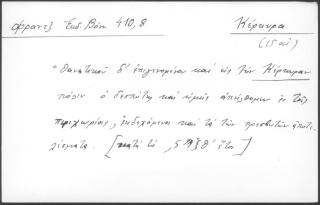 Φραντζ. Ἐκδ. Βόνν. 410, 8
Κέρκυρα
(15 αἰ)
"θανατικοῦ δ' ἐπιγινομένου καὶ εἰς τὴν Κέρκυραν
πόλιν ὁ δεσπότης καὶ ἡμεῖς ἀπήλθομεν ἐν τοῖς
περιχωρίοις, ἐκδεχόμενοι καὶ τὰ τῶν πρεσβυτῶν ἀποτε-
λέσματα. [κατὰ τὸ ἔτο]